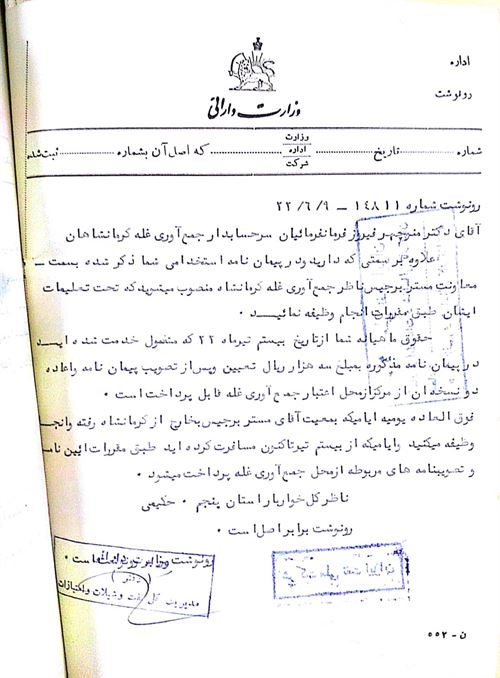 اداره
رونوشت
وزارت دارائی
شماره ........ تاریخ ........ وزارت اداره شرکت ........ که اصل آن بشماره ........ ثبت شده
رونوشت شماره ۱۴۸۱۱ – ۲۲/۶/۹
آقای دکتر منوچهر فیروز فرمانفرمائیان سرحسابدار جمع آوری غله کرمانشاهان
علاوه بر سمتی که دارید و در پیمان نامه استخدامی شما ذکر شده بسمت –
معاونت مستر برجیس ناظر جمع آوری غله کرمانشاه منصوب میشوید که تحت تعلیمات
ایشان طبق مقررات انجام وظیفه نمائید .
حقوق ماهیانه شما از تاریخ بیستم تیرماه ۲۲ که مشغول خدمت شده اید
در پیمان نامه مذکوره بمبلغ سه هزار ریال تعیین و پس از تصویب پیمان نامه و اعاده
دو نسخه آن از مرکز از محل اعتبار جمع آوری غله قابل پرداخت است .
فوق العاده یومیه ایامیکه بمعیت آقای مستر برجیس بخارج از کرمانشاه رفته وانجام
وظیفه میکنید و ایامیکه از بیستم تیر تاکنون مسافرت کرده اید طبق مقررات آئین نامه
و تصویبنامه های مربوطه از محل جمع آوری غله پرداخت میشود .
ناظر کل خواربار استان پنجم . حکیمی
رونوشت برابر اصل است .
رونوشت برابر است .
مدیریت کل نفت و شیلات و امتیازات
ن – ۵۵۲